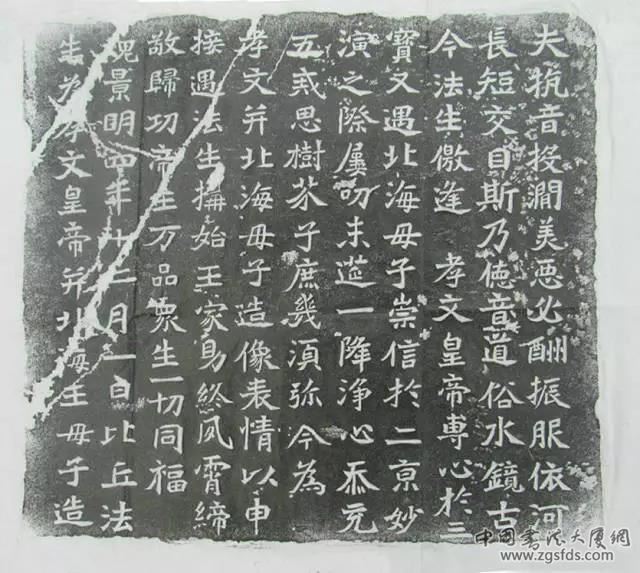 夫抗音投澗美惡必酬振服依河
長短交目斯乃德音道俗水鏡古
今法生儌逢 孝文皇帝專心於三
寶又遇北海母子崇信於二京妙
演之際屢叨末莚一降淨心忝充
五戒思樹芥子庶幾須弥今為
孝文并北海母子造像表情以申
接遇法生搆始王家易終夙霄締
敬歸功帝主万品衆生一切同福
魏景明四年十二月一日比丘法
生為孝文皇帝并北海王母子造
中国书法大厦網
www.zgsfds.com